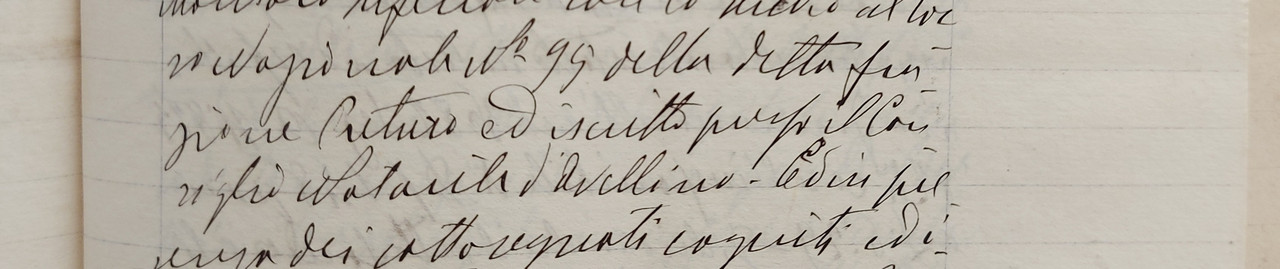 so Nazionale N° 95 della detta fra
zione Preturo ed iscritto presso il Con
siglio Notarile d'Avellino - Ed in pre
senza dei sottosegnati cogniti ed i-